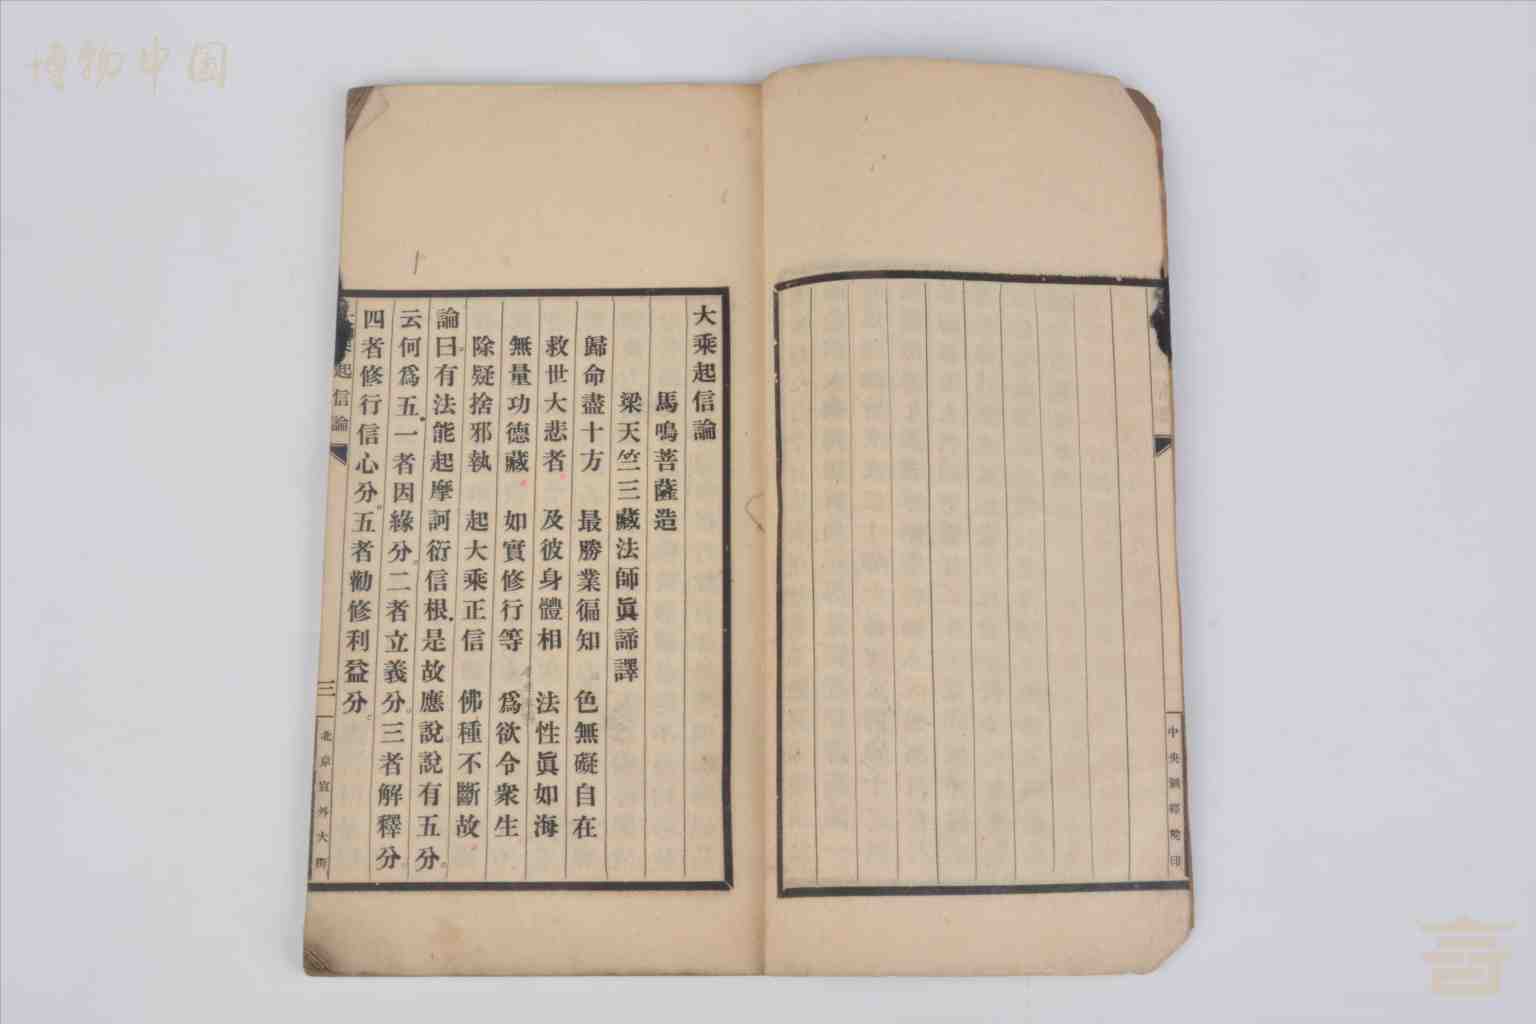 博物中国
大乘起信論
馬鳴菩薩造
梁天竺三藏法師眞諦譯
歸命盡十方　最勝業徧知　色無礙自在
救世大悲者　及彼身體相　法性眞如海
無量功德藏　如實修行等　爲欲令衆生
除疑捨邪執　起大乘正信　佛種不斷故
論曰有法能起摩訶衍信根是故應說說有五分
云何爲五一者因緣分二者立義分三者解釋分
四者修行信心分五者勸修利益分
起信論
三
北京宣外大街
中央刻經院印